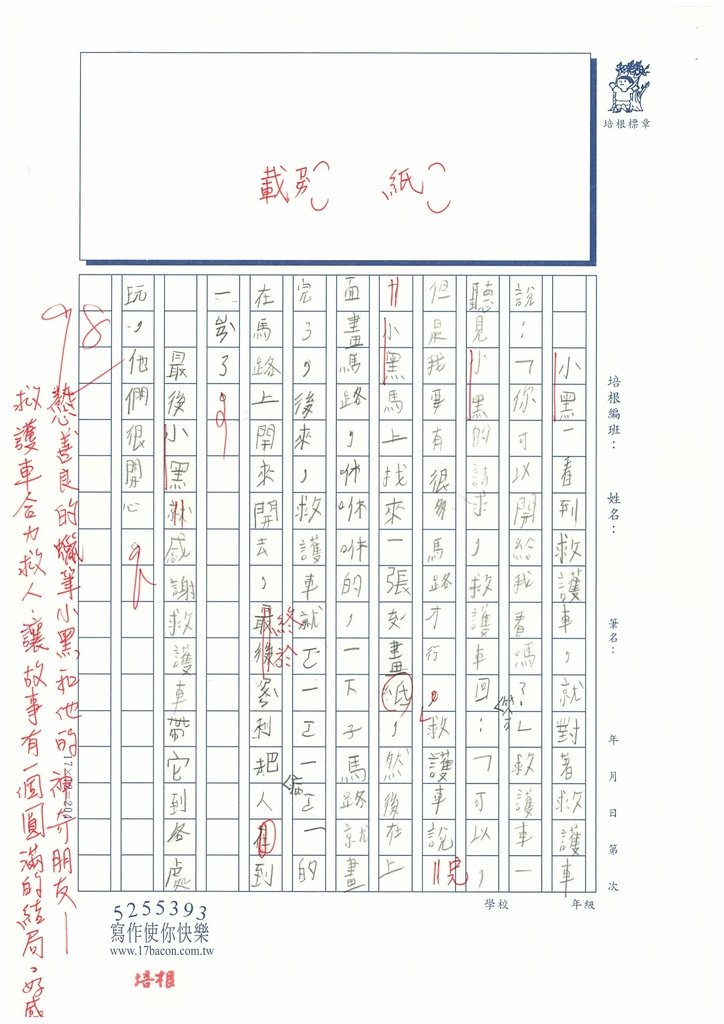 載
紙
培根標章
培根編班：
姓名：
筆名：
年 月 日 第 次
小黑一看到救護車，就對著救護車
說：「你可以開給我看嗎？」救護車一
聽見小黑的請求，救護車回答：「可以，
但是我要有很多馬路才行。」救護車說完
小黑馬上找來一張畫紙，然後在上
面畫馬路，咻咻咻的，一下子馬路就畫
完了，後來，救護車就ㄛㄧㄛㄧㄛㄧ的
在馬路上開來開去，最後終於順利把病人載到
最後小黑感謝救護車帶它到各處
玩，他們很開心。
98
善良的蠟筆小黑和他的神奇朋友—
救護車合力救人，讓故事有一個圓滿的結局，好感
學校
年級
5255393
寫作使你快樂
www.17bacon.com.tw
培根